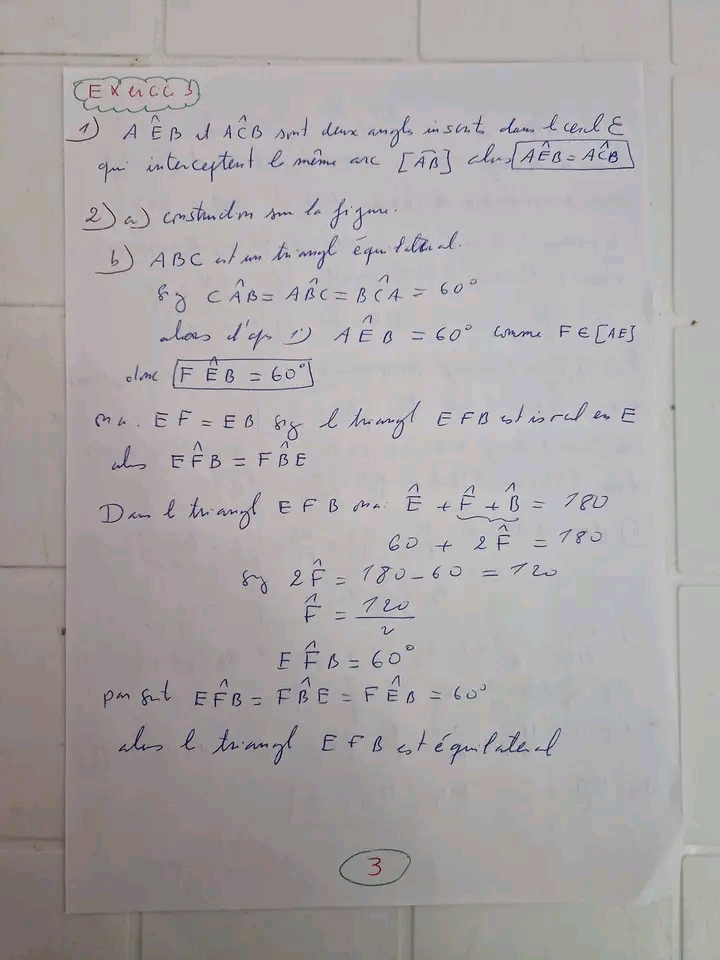 Exercice 3
1) AÊB et AĈB sont deux angles inscrits dans le cercle ℰ
qui interceptent le même arc [AB] alors AÊB = AĈB
2) a) construction sur la figure.
b) ABC est un triangle équilatéral.
sig CÂB = AB̂C = BĈA = 60°
alors d'aps 1) AÊB = 60° comme F ∈ [AE]
donc FÊB = 60°
on a: EF = EB sig le triangl EFB est isocel en E
alors EF̂B = FB̂E
Dans le triangl EFB on a: Ê + F̂ + B̂ = 180
60 + 2F̂ = 180
sig 2F̂ = 180 - 60 = 120
F̂ = 120/2
EF̂B = 60°
par suit EF̂B = FB̂E = FÊB = 60°
alors le triangl EFB est équilateral
3